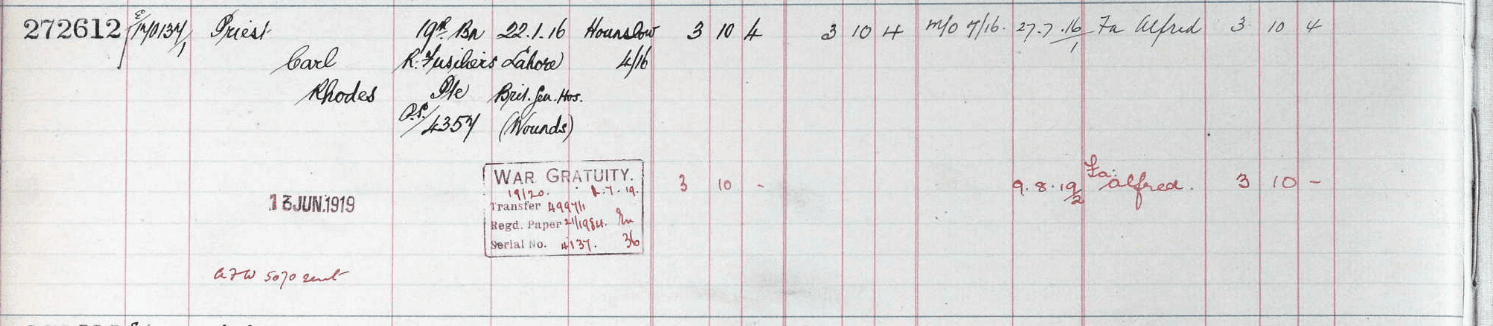 272612 E/170134/1 Priest 19th Bn 22.1.16 Hounslow 3 10 4 3 10 4 M/O 7/16. 27.7.16/1 Fa Alfred 3 10 4
Carl R. Fusiliers Lahore 4/16
Rhodes Pte Brit. Gen. Hos.
P.S./4357 (Wounds)
WAR GRATUITY. 3 10 - 9.8.19/2 Fa: Alfred. 3 10 -
19/20. 2.7.19.
13 JUN. 1919 Transfer 4997/1
Regd. Paper
Serial No. 4137. 36
AFW 5070 sent